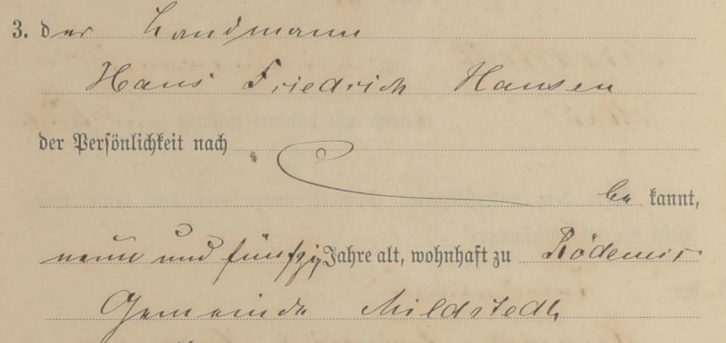 3. der Landmann
Hans Friedrich Hansen
der Persönlichkeit nach
be kannt,
neun und fünfzig Jahre alt, wohnhaft zu Rödemis
Gemeinde Mildstedt,